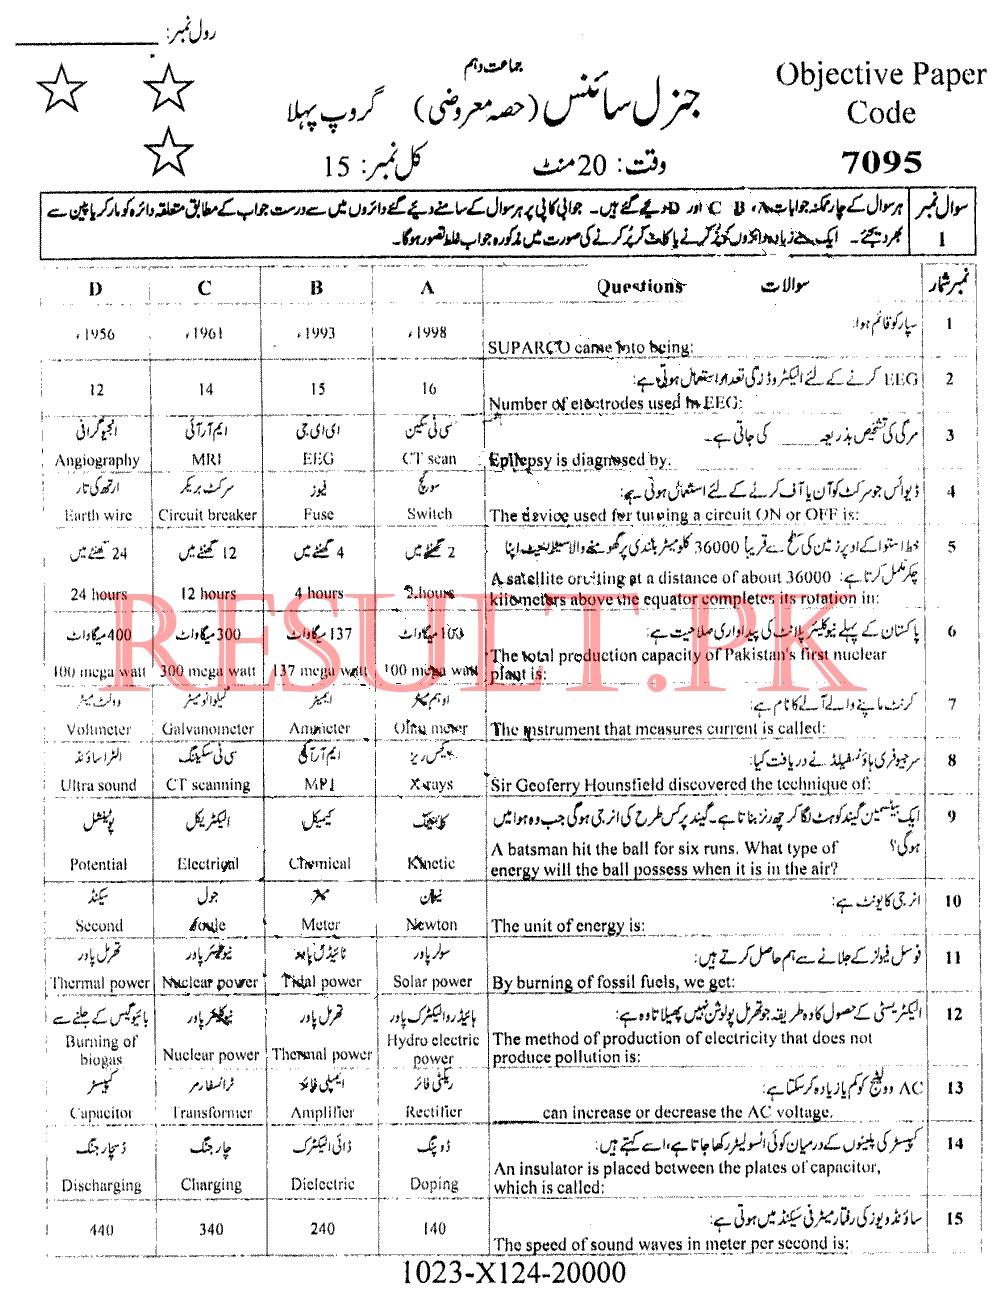 رول نمبر:
جماعت دہم
Objective Paper
Code
7095
جنرل سائنس (حصہ معروضی) گروپ پہلا
وقت: 20 منٹ کل نمبر: 15
سوال نمبر 1
ہر سوال کے چار ممکنہ جوابات A، B، C اور D دیئے گئے ہیں۔ جوابی کاپی پر ہر سوال کے سامنے دیئے گئے دائروں میں سے درست جواب کے مطابق متعلقہ دائرہ کو مارکر یا پین سے
بھر دیجئے۔ ایک سے زیادہ دائروں کو پُر کرنے یا کاٹ کر پُر کرنے کی صورت میں مذکورہ جواب غلط تصور ہوگا۔
نمبر شمار سوالات Questions A B C D
1 سپارکو قائم ہوا:
SUPARCO came into being:
1998ء 1993ء 1961ء 1956ء
2 EEG کرنے کے لئے الیکٹروڈز کی تعداد استعمال ہوتی ہے:
Number of electrodes used in EEG:
16 15 14 12
3 مرگی کی تشخیص بذریعہ ____ کی جاتی ہے۔
Epilepsy is diagnosed by:
سی ٹی سکین ای ای جی ایم آر آئی انجیوگرافی
CT scan EEG MRI Angiography
4 ڈیوائس جو سرکٹ کو آن یا آف کرنے کے لئے استعمال ہوتی ہے:
The device used for turning a circuit ON or OFF is:
سوئچ فیوز سرکٹ بریکر ارتھ کی تار
Switch Fuse Circuit breaker Earth wire
5 خط استوا کے اوپر زمین کی سطح سے قریباً 36000 کلومیٹر بلندی پر گھومنے والا سیٹلائیٹ اپنا
چکر مکمل کرتا ہے:
A satellite orbiting at a distance of about 36000
kilometers above the equator completes its rotation in:
2 گھنٹے میں 4 گھنٹے میں 12 گھنٹے میں 24 گھنٹے میں
2 hours 4 hours 12 hours 24 hours
6 پاکستان کے پہلے نیوکلیئر پلانٹ کی پیداواری صلاحیت ہے:
The total production capacity of Pakistan's first nuclear
plant is:
100 میگاواٹ 137 میگاواٹ 300 میگاواٹ 400 میگاواٹ
100 mega watt 137 mega watt 300 mega watt 400 mega watt
7 کرنٹ ماپنے والے آلے کا نام ہے:
The instrument that measures current is called:
اوہم میٹر ایمیٹر گیلوانومیٹر وولٹ میٹر
Ohm meter Ammeter Galvanometer Voltmeter
8 سر جیوفری ہاؤنسفیلڈ نے دریافت کیا:
Sir Geoferry Hounsfield discovered the technique of:
ایکس ریز ایم آر آئی سی ٹی سکیننگ الٹراساؤنڈ
X-rays MRI CT scanning Ultra sound
9 ایک بیٹسمین گیند کو ہٹ لگا کر چھ رنز بناتا ہے۔ گیند پر کس طرح کی انرجی ہوگی جب وہ ہوا میں
ہوگی؟
A batsman hit the ball for six runs. What type of
energy will the ball possess when it is in the air?
کائنیٹک کیمیکل الیکٹریکل پوٹینشل
Kinetic Chemical Electrical Potential
10 انرجی کا یونٹ ہے:
The unit of energy is:
نیوٹن میٹر جول سیکنڈ
Newton Meter Joule Second
11 فوسل فیولز کے جلانے سے ہم حاصل کرتے ہیں:
By burning of fossil fuels, we get:
سولر پاور ٹائیڈل پاور نیوکلیئر پاور تھرمل پاور
Solar power Tidal power Nuclear power Thermal power
12 الیکٹریسٹی کے حصول کا وہ طریقہ جو تھرمل پولوشن نہیں پھیلاتا وہ ہے:
The method of production of electricity that does not
produce pollution is:
ہائیڈرو الیکٹرک پاور تھرمل پاور نیوکلیئر پاور بائیوگیس کے جلنے سے
Hydro electric power Thermal power Nuclear power Burning of biogas
13 AC وولٹیج کو کم یا زیادہ کر سکتا ہے:
____ can increase or decrease the AC voltage.
ریکٹی فائر ایمپلی فائر ٹرانسفارمر کپیسٹر
Rectifier Amplifier Transformer Capacitor
14 کپیسٹر کی پلیٹوں کے درمیان کوئی انسولیٹر رکھا جاتا ہے، اسے کہتے ہیں:
An insulator is placed between the plates of capacitor,
which is called:
ڈوپنگ ڈائی الیکٹرک چارجنگ ڈسچارجنگ
Doping Dielectric Charging Discharging
15 ساؤنڈ ویوز کی رفتار میٹر فی سیکنڈ میں ہوتی ہے:
The speed of sound waves in meter per second is:
140 240 340 440
1023-X124-20000
RESULT.PK